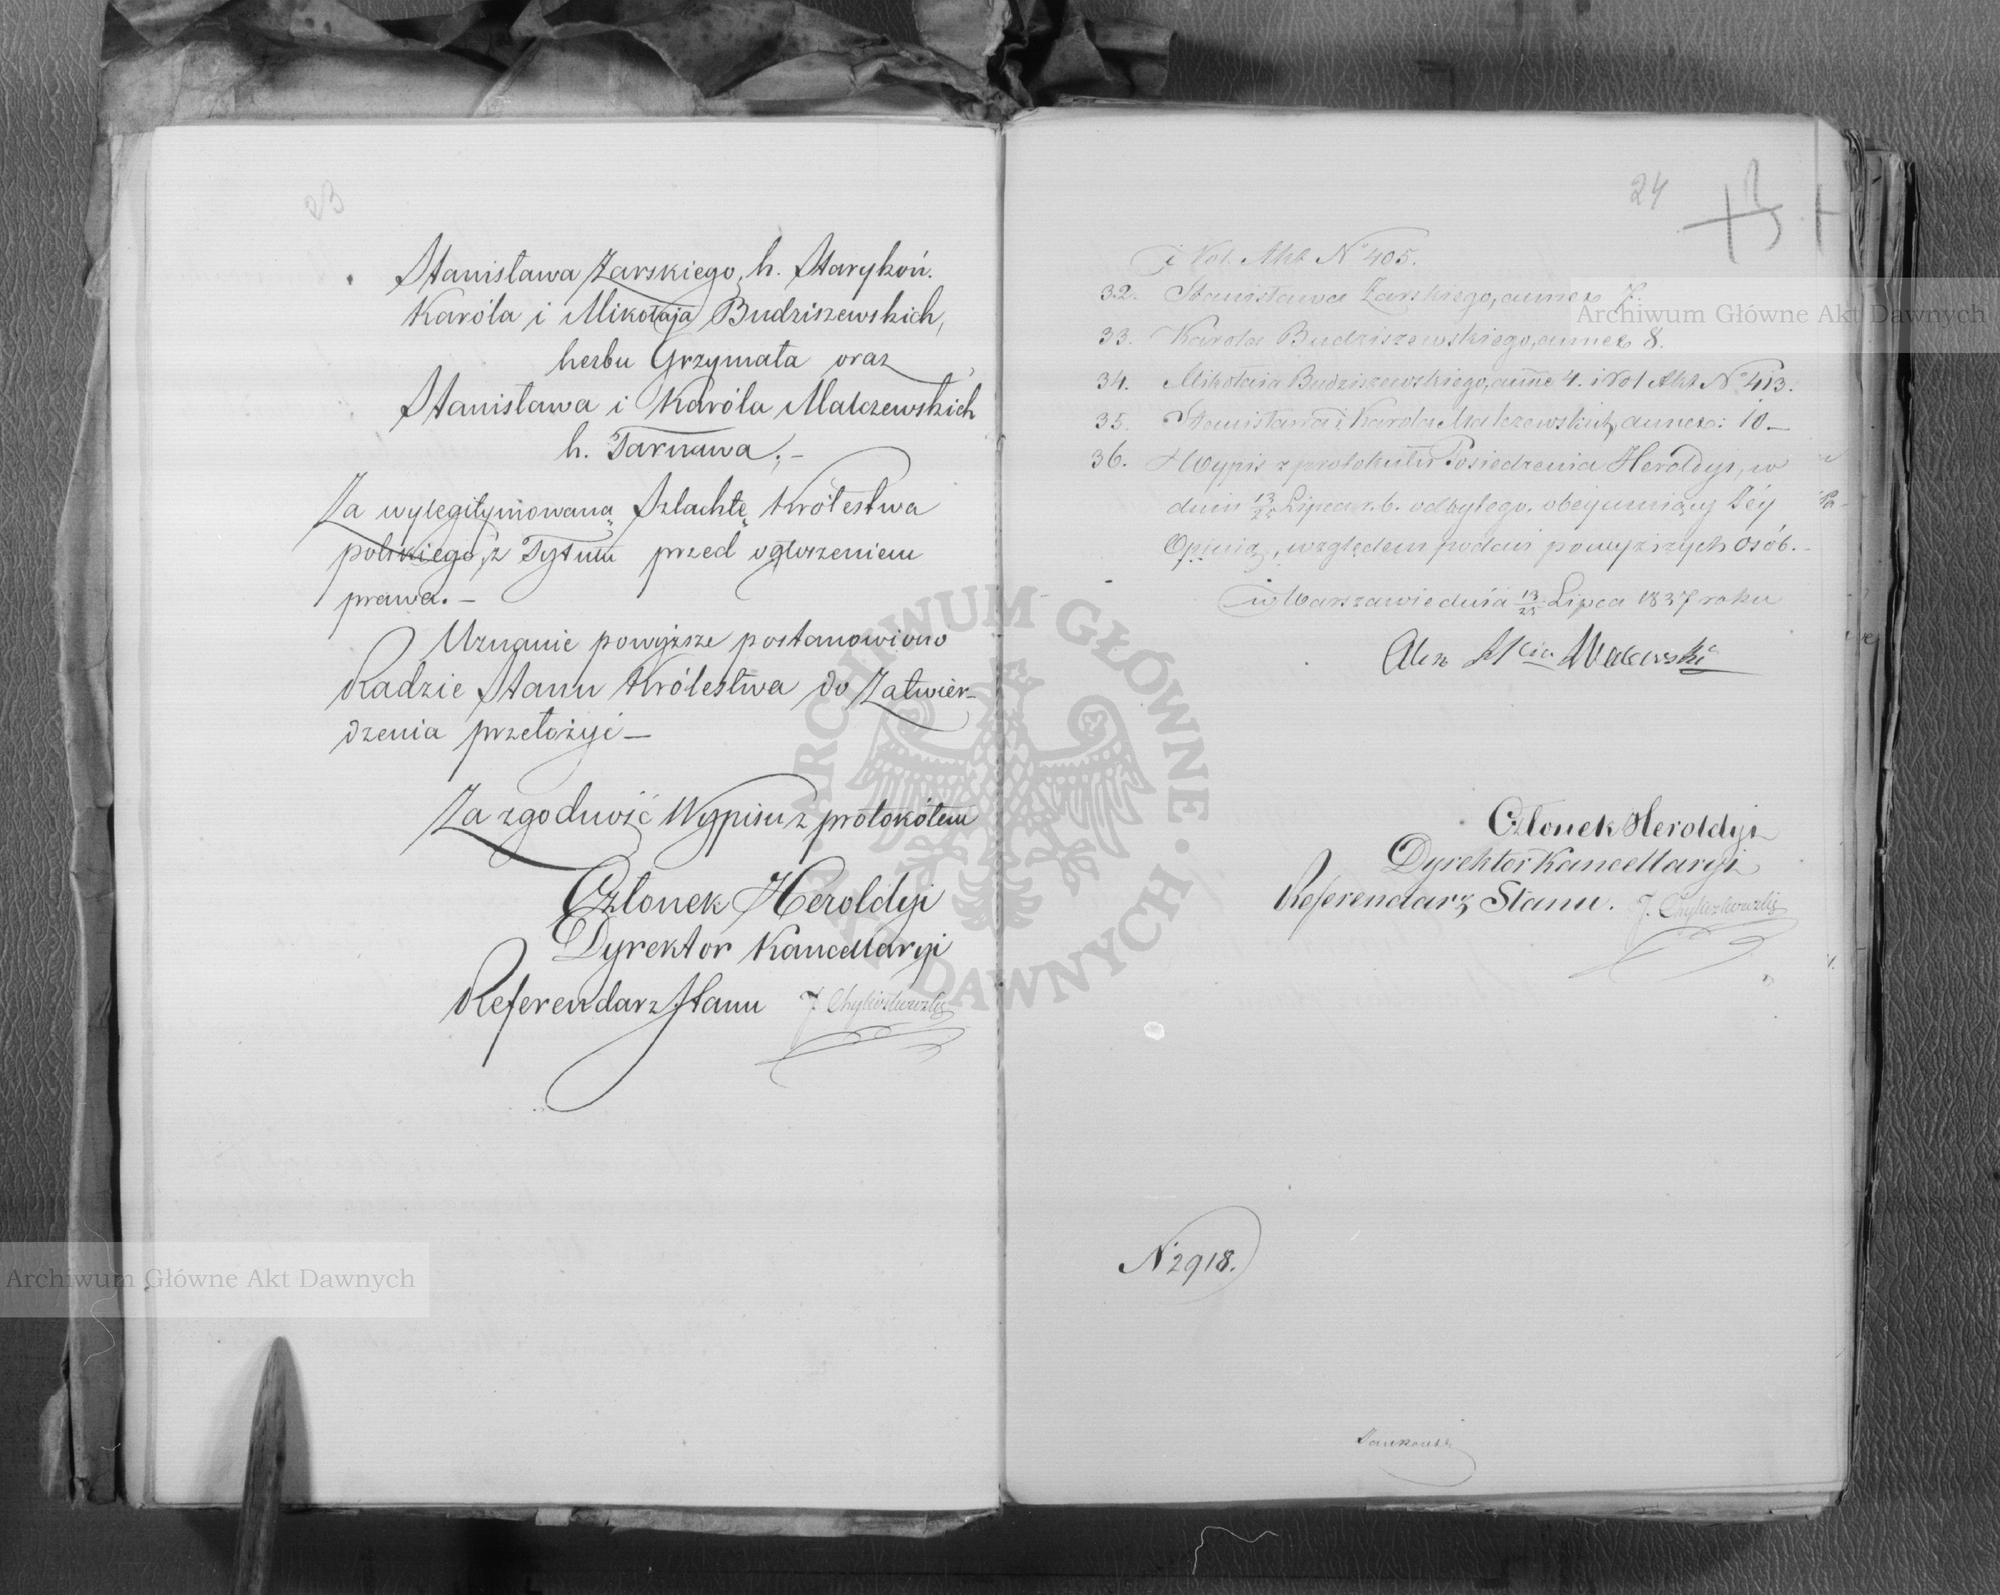 23
Stanisława Żarskiego, h. Starykoń.
Karóla i Mikołaja Budziszewskich,
herbu Grzymała oraz
Stanisława i Karóla Malczewskich
h. Tarnawa. –
Za wylegitymowaną Szlachtę Królestwa
polskiego, z Tytułu przed ogłoszeniem
prawa. –
Uznanie powyższe postanowiono
Radzie Stanu Królestwa do Zatwier-
dzenia przełożyć –
Za zgodność Wypisu z protokółem
Członek Heroldyi
Dyrektor Kancellaryi
Referendarz Stanu
24
i Vol. Akt No 405.
32. Stanisława Żarskiego, annex 7.
33. Karola Budziszewskiego, annex 8.
34. Mikołaia Budziszewskiego, anne 4. i Vol Akt No 413.
35. Stanisława i Karola Malczewskich, annex: 10 –
36. Wypis z protokułu Posiedzenia Heroldyi, w
dniu 13/25 Lipca r. b. odbytego, obeymuiący Jéy
Opinią, względem podań powyższych osób. –
w Warszawie dnia 13/25 Lipca 1837 roku
Alex Walewski
Członek Heroldyi
Dyrektor Kancellaryi
Referendarz Stanu.
N 2918.
Archiwum Główne Akt Dawnych
Archiwum Główne Akt Dawnych
ARCHIWUM GŁÓWNE AKT DAWNYCH